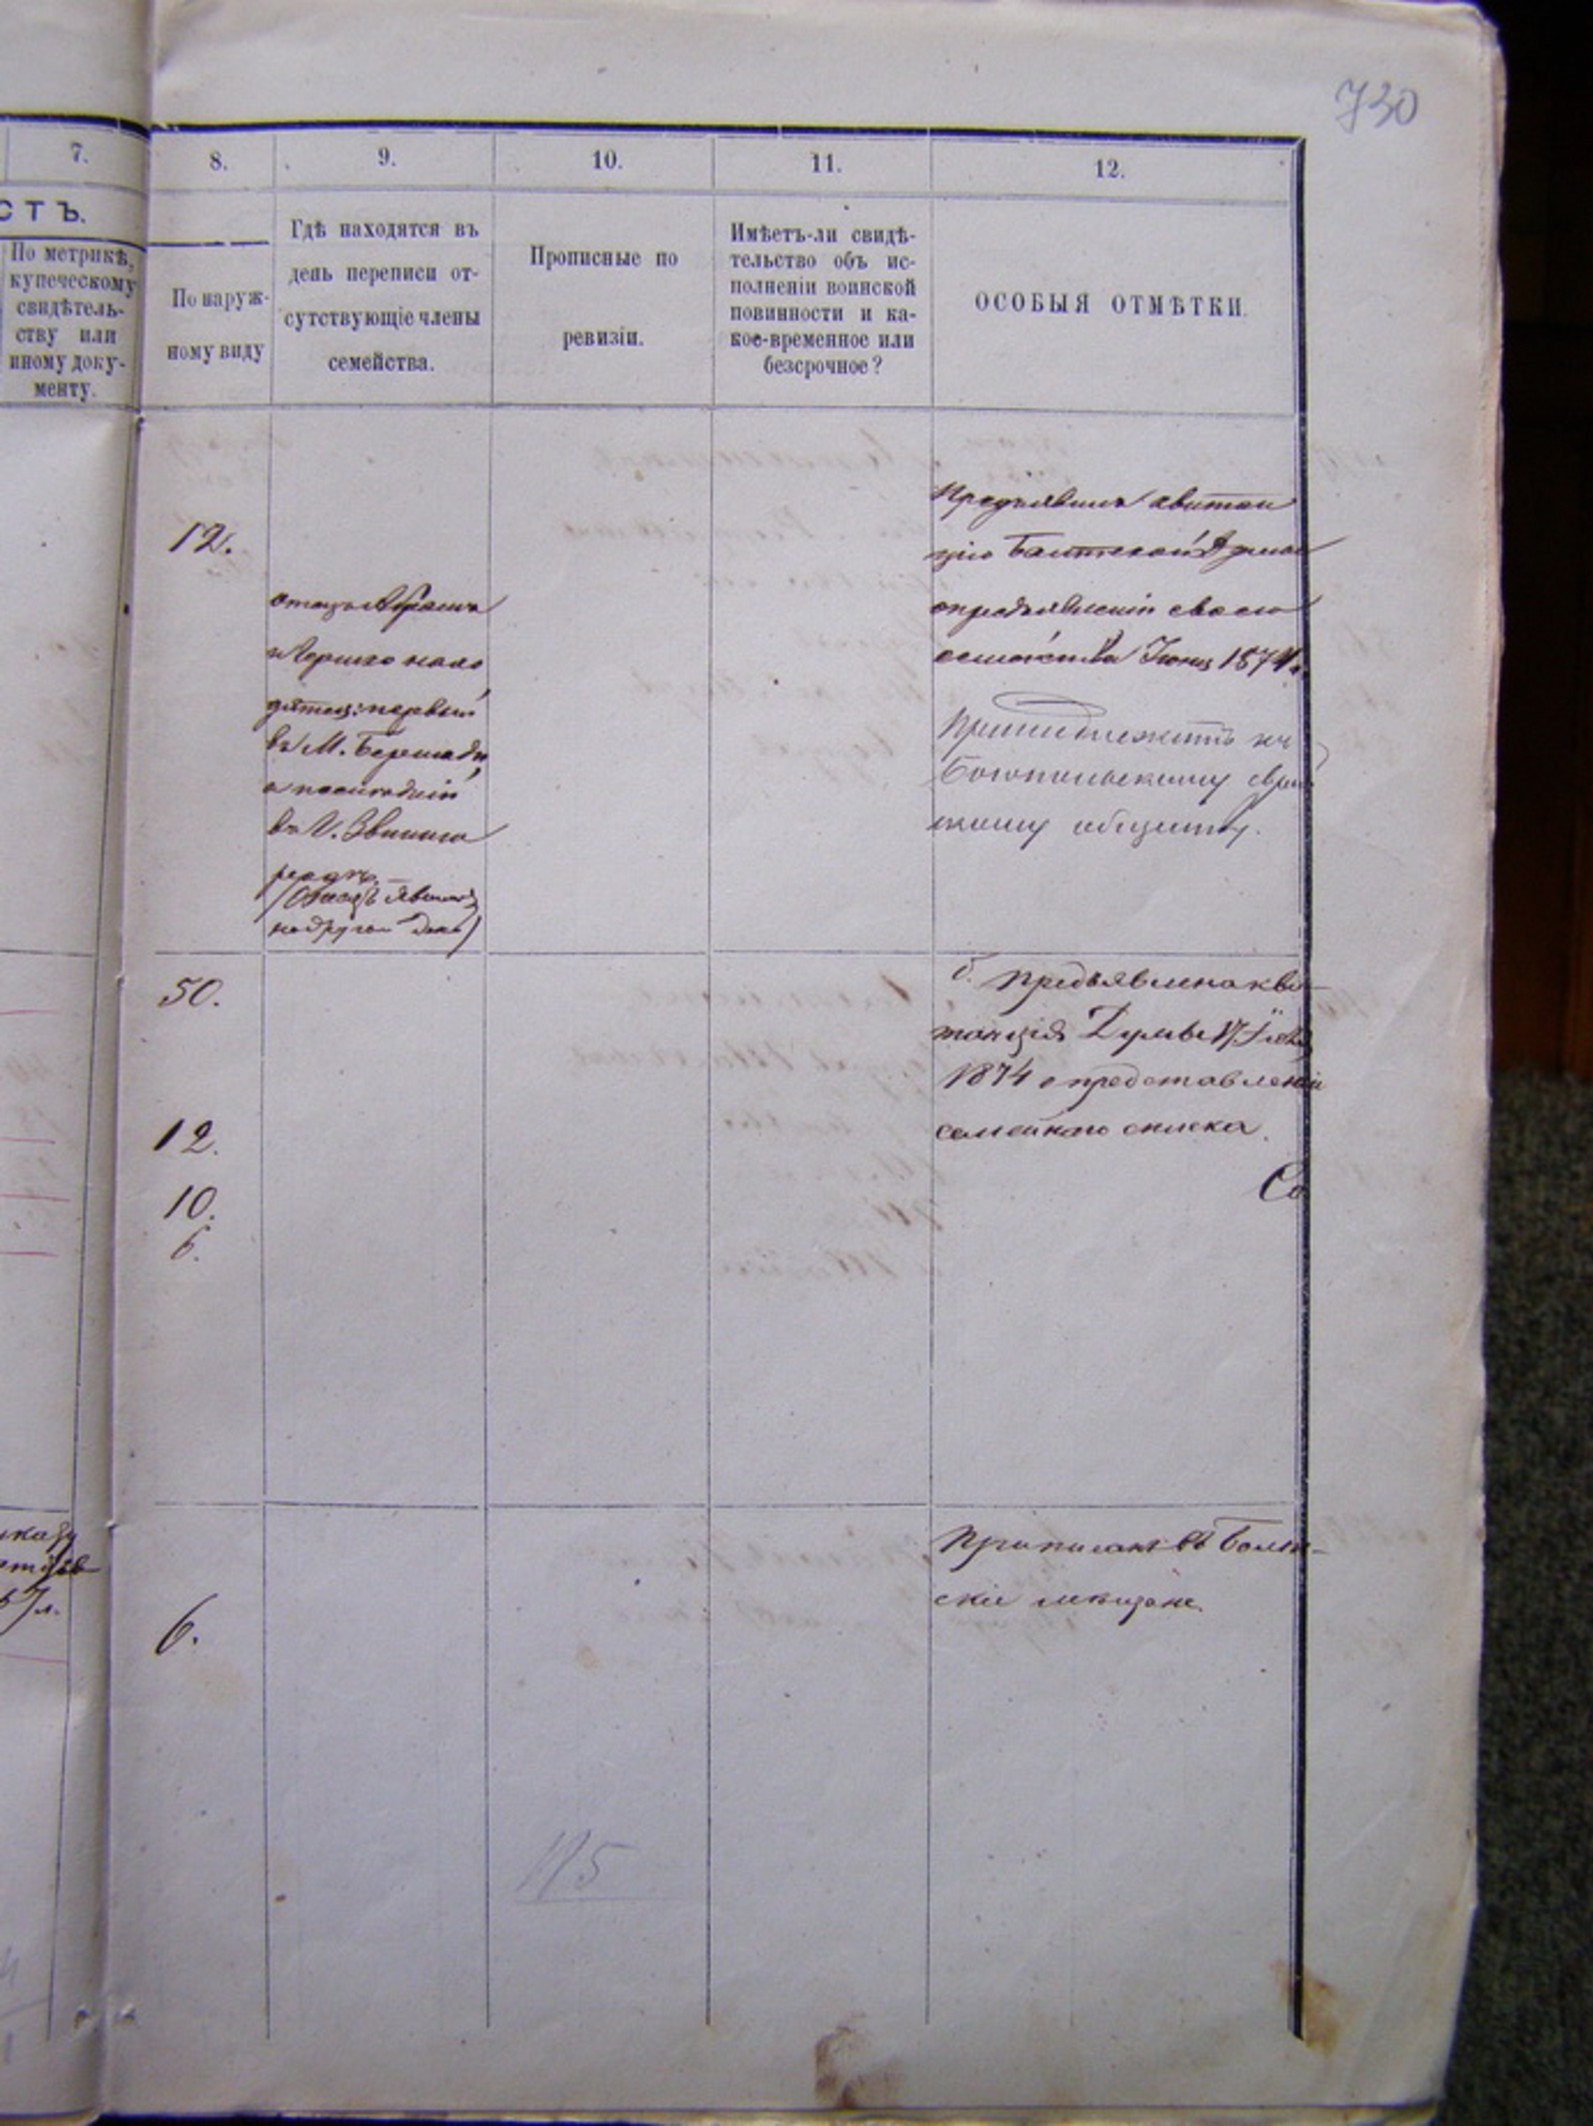 730
7.
8.
9.
10.
11.
12.
СТЪ.
По метрикѣ,
купеческому
свидѣтель-
ству или
иному доку-
менту.
По наруж-
ному виду
Гдѣ находятся въ
день переписи от-
сутствующіе члены
семейства.
Прописные по
ревизіи.
Имѣетъ-ли свидѣ-
тельство объ ис-
полненіи воинской
повинности и ка-
кое-временное или
безсрочное?
ОСОБЫЯ ОТМѢТКИ.
12.
отецъ Абрамъ
нахо
дятся: первый
въ М. Бершади,
а послѣдній
въ
на другой день)
Предъявилъ квитан
цію Балтской Думы
опредъявленіи своего
семейства Іюня 1874
Принадлежитъ къ
Богопольскому еврей
скому обществу.
50.
12.
10.
6.
предъявлена кви-
танція Думы
1874 о представленіи
семейнаго списка.
Со
6.
Приписанъ въ Балт-
скіе мѣщане.
115